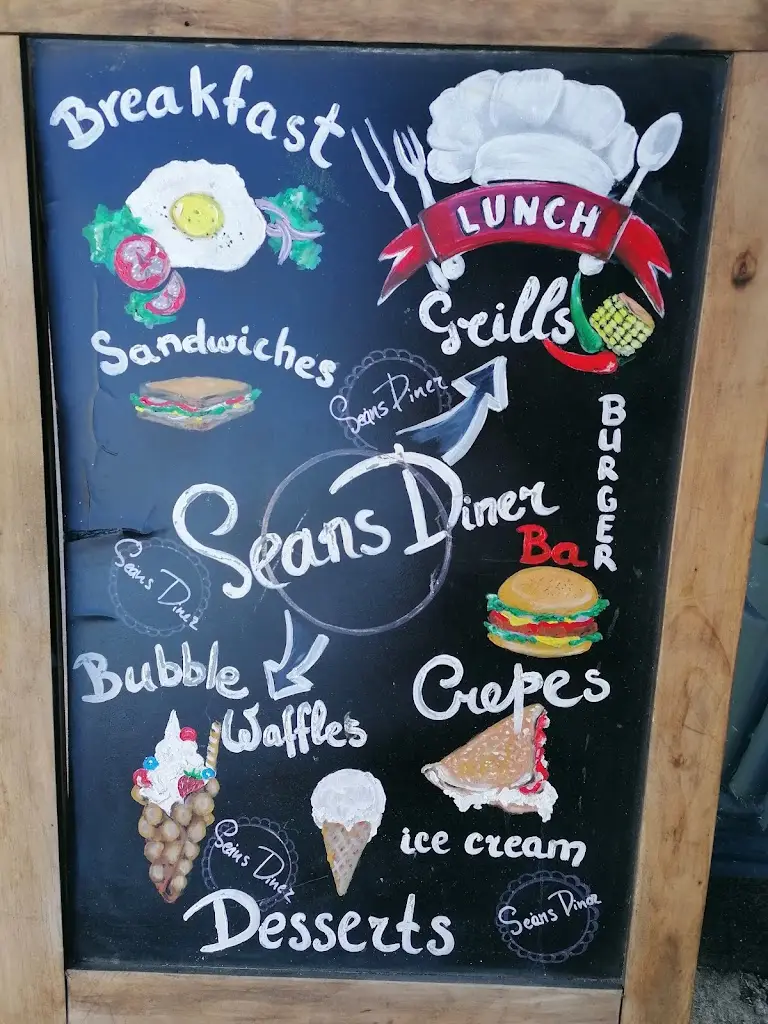 Breakfast
LUNCH
Grills
Sandwiches
Seans Diner
Seans Diner
BURGER
Ba
Seans Diner
Bubble
Waffles
Crepes
ice cream
Seans Diner
Desserts
Seans Diner